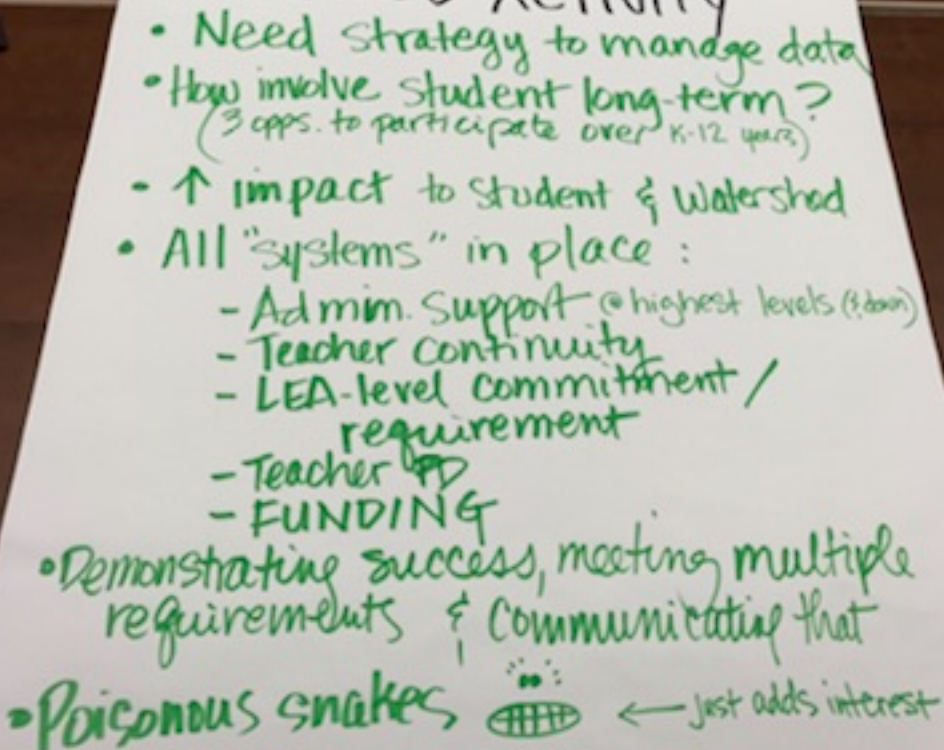 ACTIVITY
• Need strategy to manage data
• How involve student long-term?
(3 opps. to participate over K-12 years)
- ↑ impact to student & watershed
• All "systems" in place:
- Admin. Support @ highest levels (& down)
- Teacher continuity
- LEA-level commitment /
requirement
- Teacher PD
- FUNDING
• Demonstrating success, meeting multiple
requirements & communicating that
• Poisonous snakes ← just adds interest